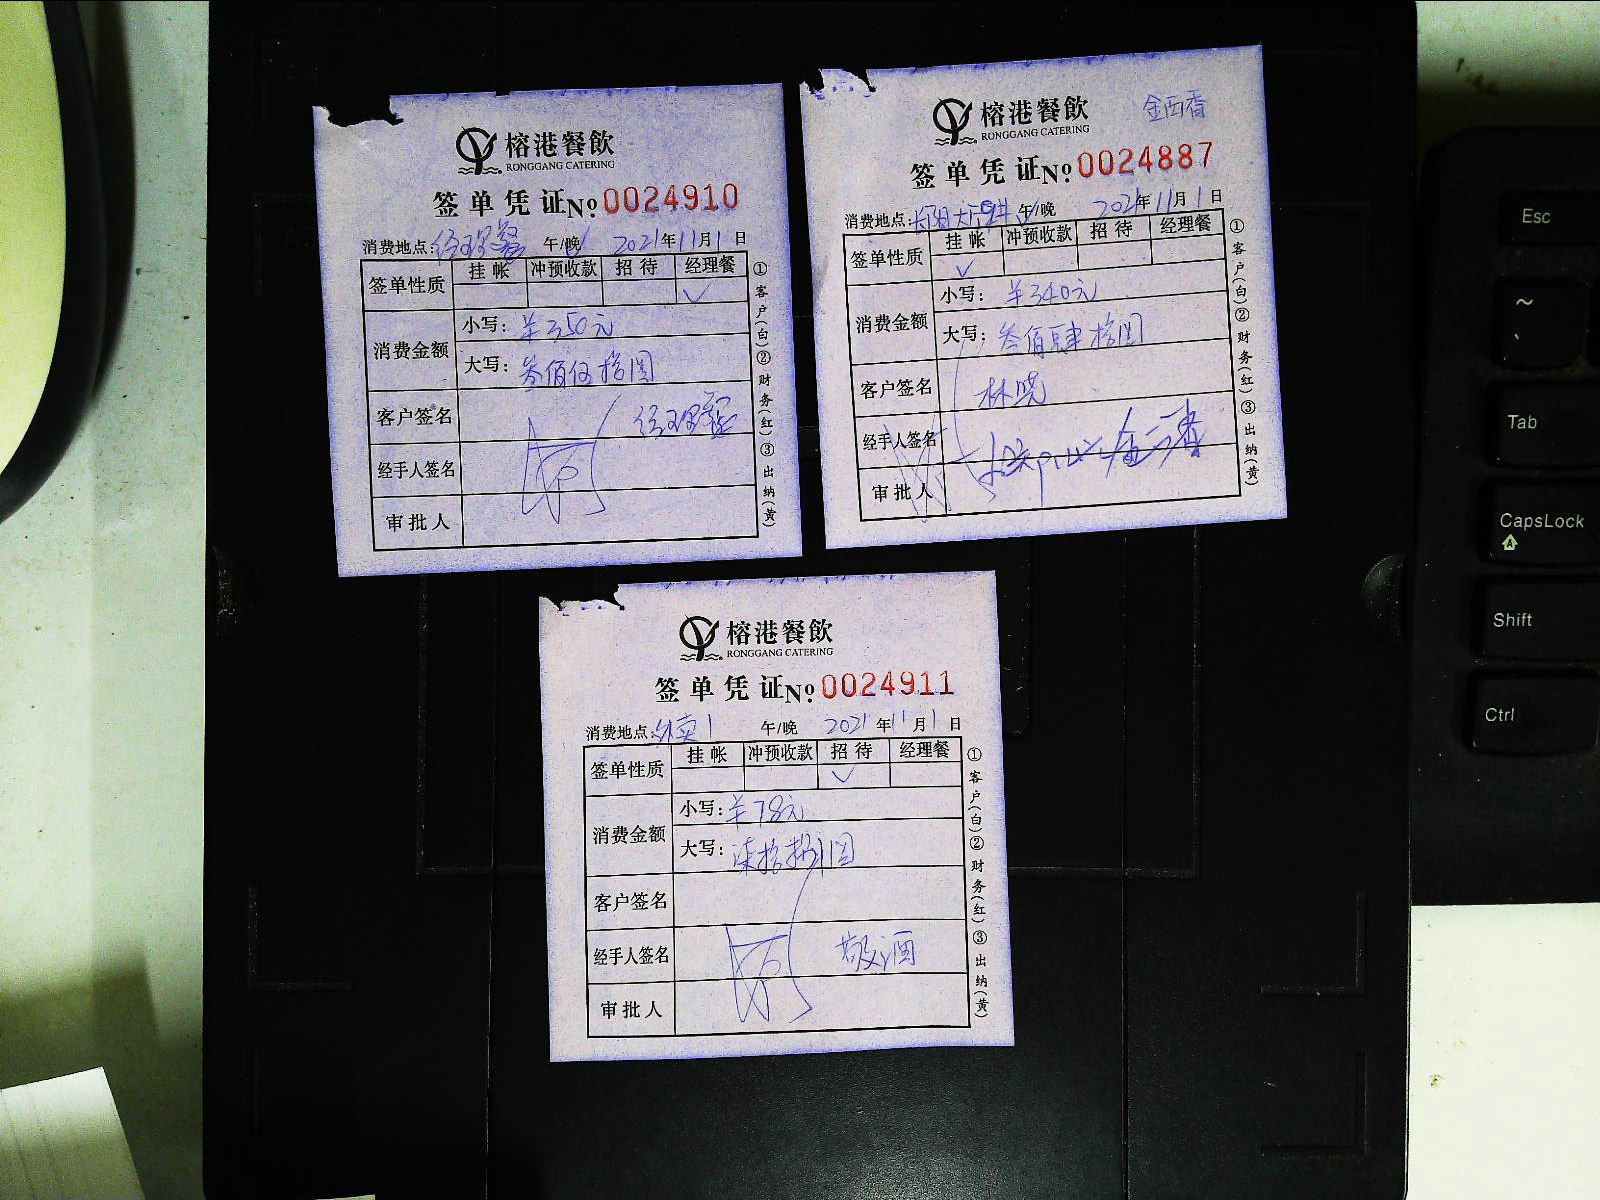 榕港餐飲
RONGGANG CATERING
签单凭证 No 0024910
消费地点: 经理餐 午/晚 2021年11月1日
签单性质 挂帐 冲预收款 招待 经理餐
✓
消费金额 小写: ¥350元
大写: 叁佰伍拾圆
客户签名 经理餐
经手人签名
审批人
①客户(白)②财务(红)③出纳(黄)
榕港餐飲
RONGGANG CATERING
金西香
签单凭证 No 0024887
消费地点: 午/晚 2021年11月1日
签单性质 挂帐 冲预收款 招待 经理餐
✓
消费金额 小写: ¥340元
大写: 叁佰肆拾圆
客户签名 林晓
经手人签名
审批人
①客户(白)②财务(红)③出纳(黄)
榕港餐飲
RONGGANG CATERING
签单凭证 No 0024911
消费地点: 外卖1 午/晚 2021年11月1日
签单性质 挂帐 冲预收款 招待 经理餐
✓
消费金额 小写: ¥78元
大写: 柒拾捌圆
客户签名
经手人签名 敬酒
审批人
①客户(白)②财务(红)③出纳(黄)
Esc
~
Tab
CapsLock
A
Shift
Ctrl